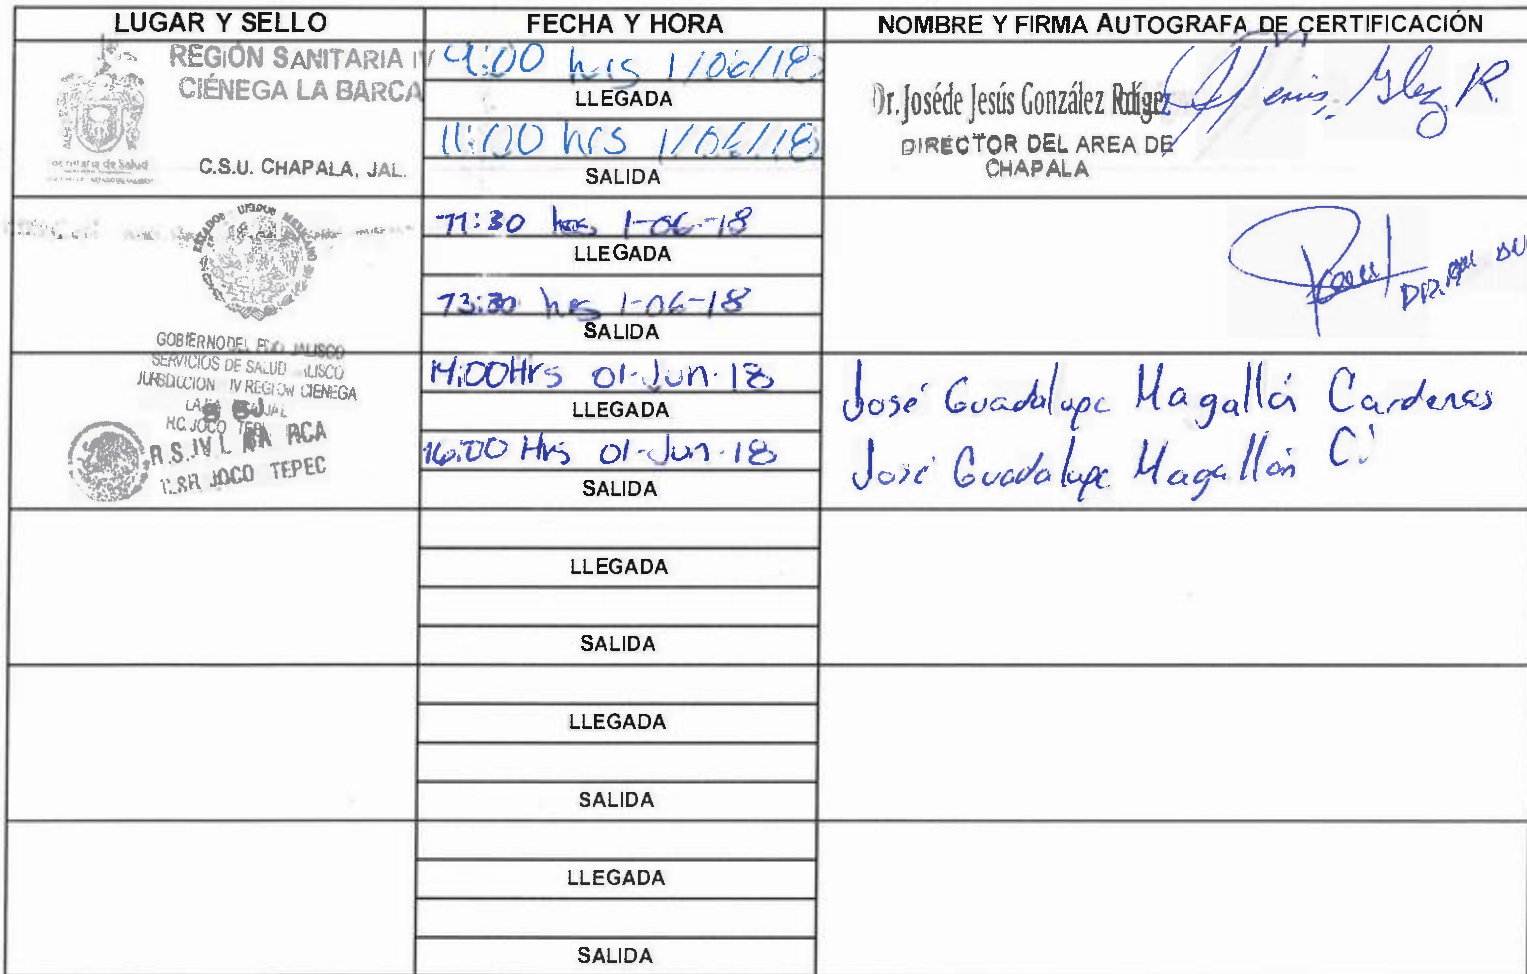 LUGAR Y SELLO
FECHA Y HORA
NOMBRE Y FIRMA AUTOGRAFA DE CERTIFICACIÓN
REGIÓN SANITARIA IV
CIÉNEGA LA BARCA
C.S.U. CHAPALA, JAL.
9:00 hrs 1/06/18
LLEGADA
11:00 hrs 1/06/18
SALIDA
Dr. José de Jesús González
DIRECTOR DEL AREA DE
CHAPALA
Jesús Glez R.
ESTADOS UNIDOS MEXICANOS
11:30 hrs 1-06-18
LLEGADA
13:30 hrs 1-06-18
SALIDA
GOBIERNO DEL EDO JALISCO
SERVICIOS DE SALUD JALISCO
JURSDICCION IV REGION CIENEGA
R.S.IV L BA RCA
JOCO TEPEC
14:00 Hrs 01-Jun-18
LLEGADA
16:00 Hrs 01-Jun-18
SALIDA
José Guadalupe Magallón Cardenas
José Guadalupe Magallón C.
LLEGADA
SALIDA
LLEGADA
SALIDA
LLEGADA
SALIDA